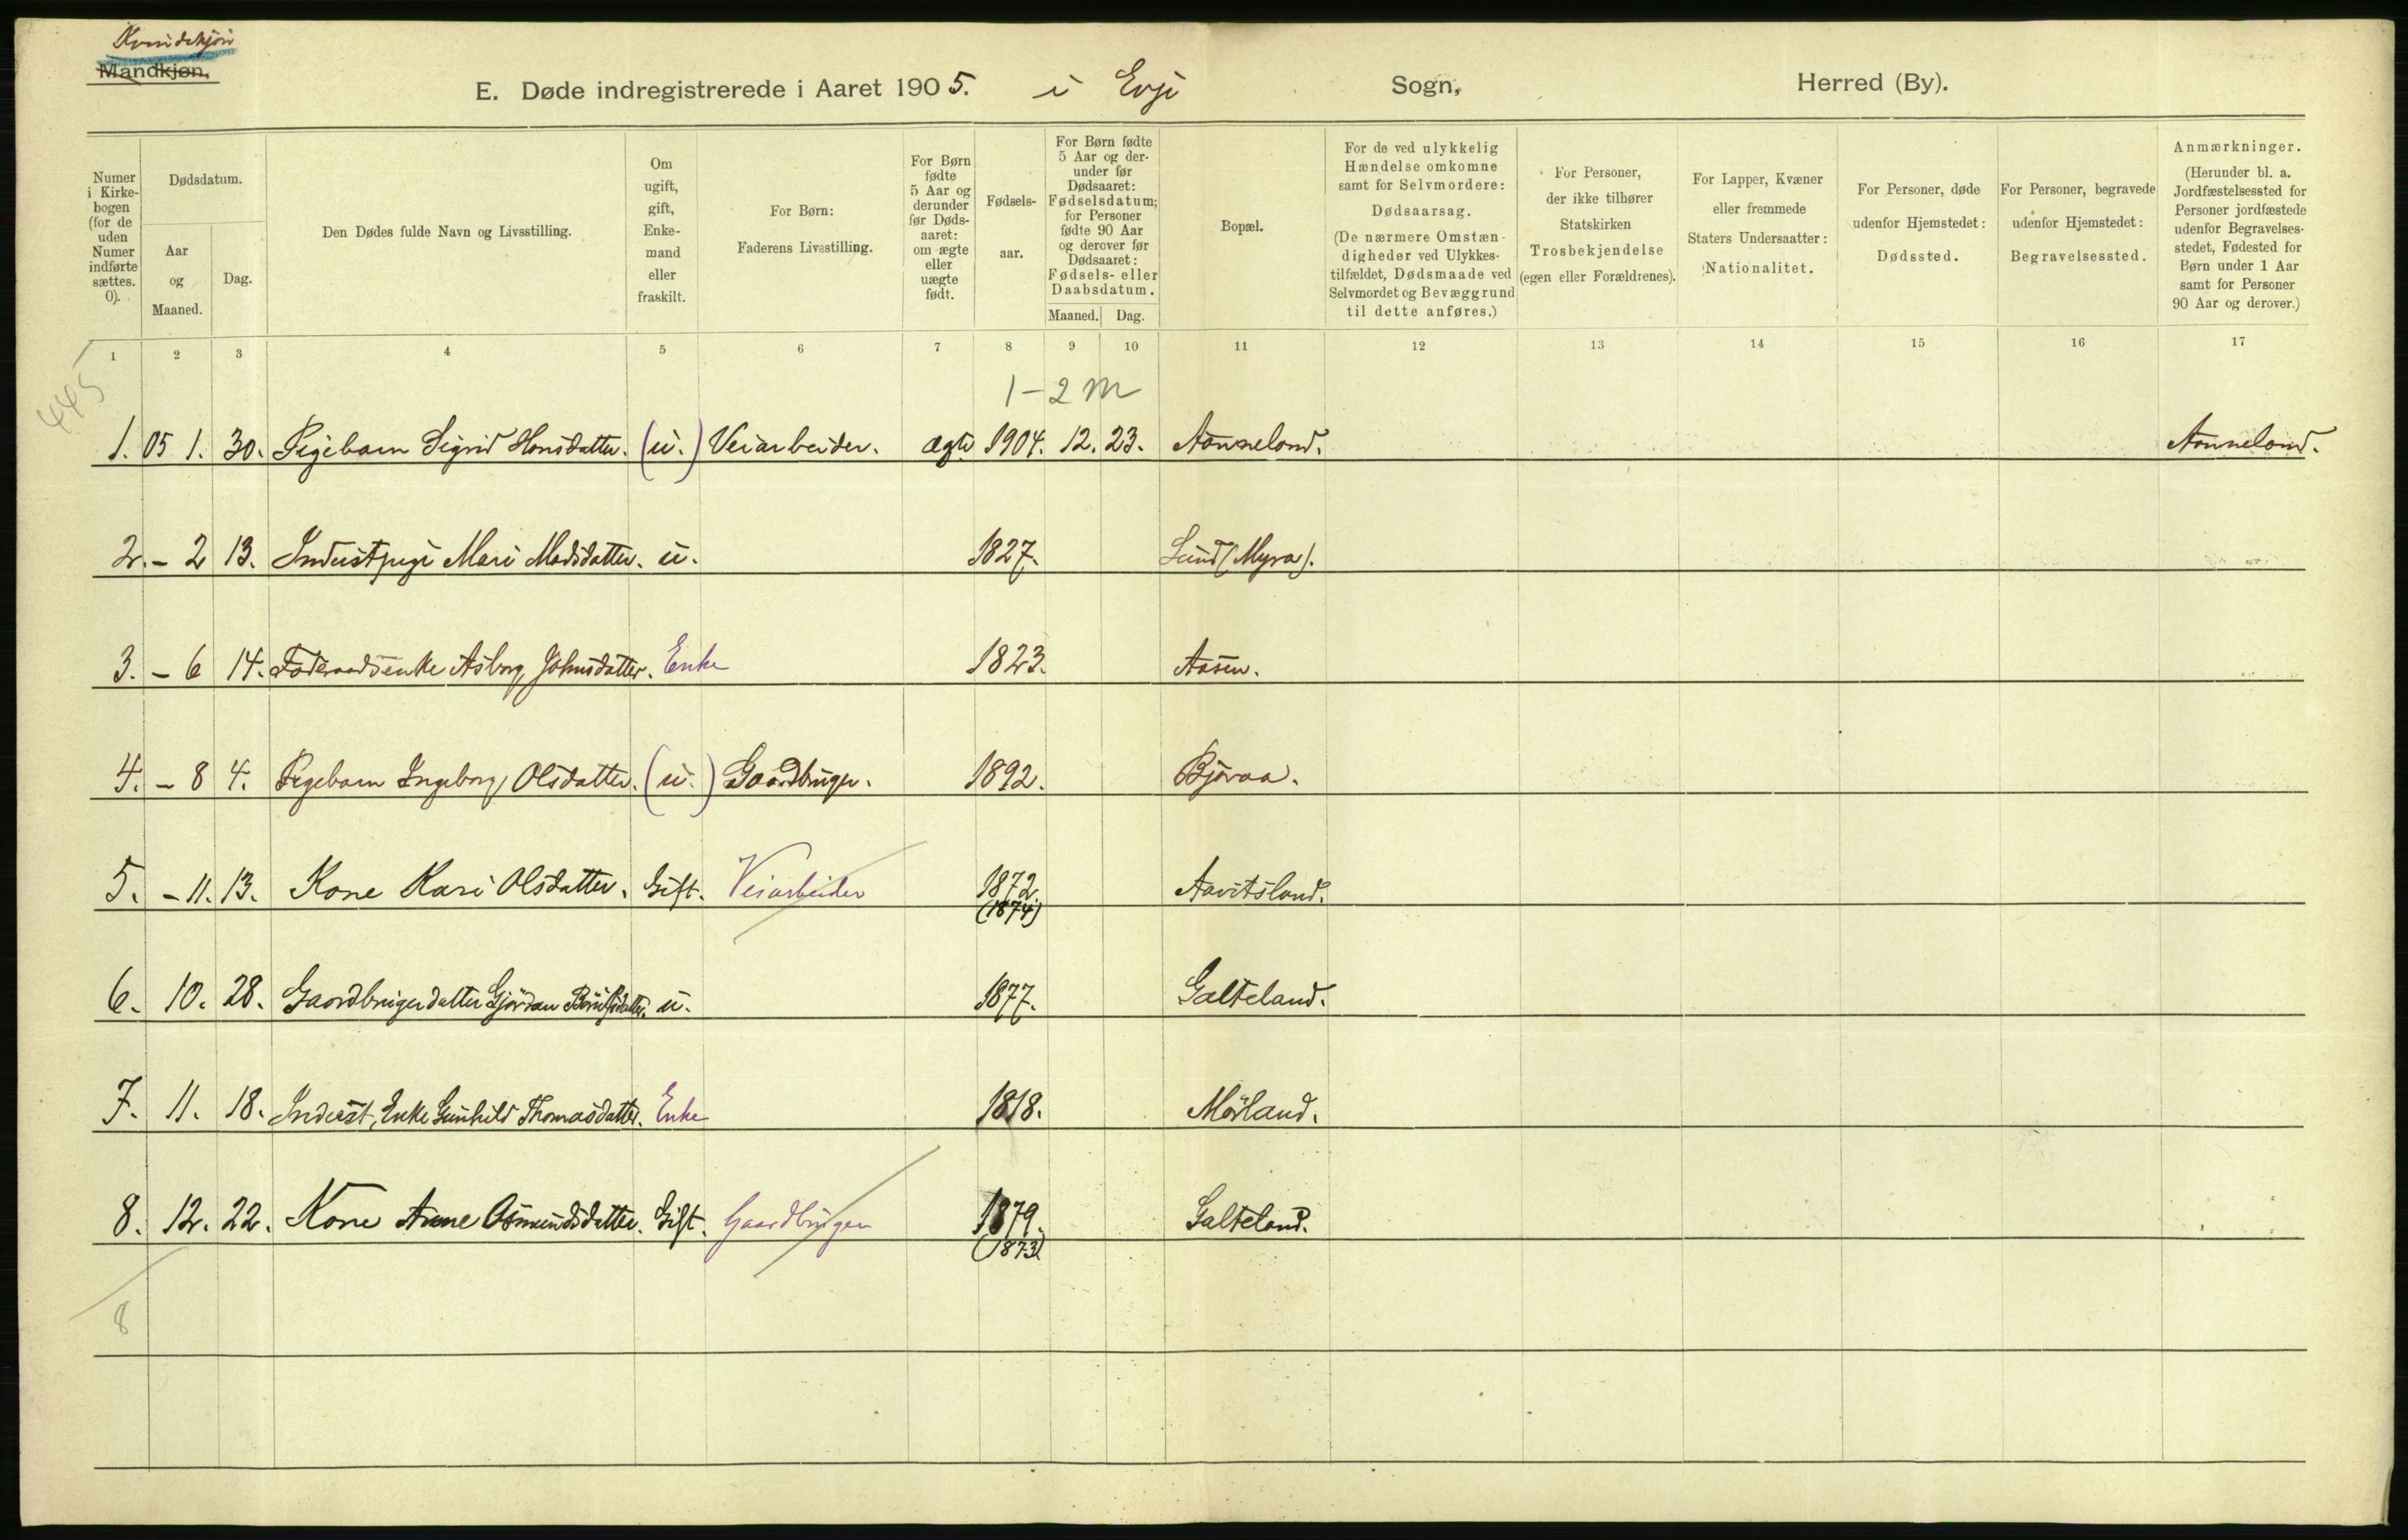 Kvindekjøn
Mandkjøn,
E. Døde indregistrerede i Aaret 1905. i Evje Sogn, Herred (By).
Numer i Kirkebogen (for de uden Numer indførte sættes. 0).
Dødsdatum.
Aar og Maaned.
Dag.
Den Dødes fulde Navn og Livsstilling.
Om ugift, gift, Enkemand eller fraskilt.
For Børn:
Faderens Livsstilling.
For Børn fødte 5 Aar og derunder før Dødsaaret: om ægte eller uægte født.
Fødselsaar.
For Børn fødte 5 Aar og derunder før Dødsaaret: Fødselsdatum; for Personer fødte 90 Aar og derover før Dødsaaret: Fødsels- eller Daabsdatum.
Maaned. Dag.
Bopæl.
For de ved ulykkelig Hændelse omkomne samt for Selvmordere: Dødsaarsag. (De nærmere Omstændigheder ved Ulykkestilfældet, Dødsmaade ved Selvmordet og Bevæggrund til dette anføres.)
For Personer, der ikke tilhører Statskirken Trosbekjendelse (egen eller Forældrenes).
For Lapper, Kvæner eller fremmede Staters Undersaatter: Nationalitet.
For Personer, døde udenfor Hjemstedet: Dødssted.
For Personer, begravede udenfor Hjemstedet: Begravelsessted.
Anmærkninger. (Herunder bl. a. Jordfæstelsessted for Personer jordfæstede udenfor Begravelsesstedet, Fødested for Børn under 1 Aar samt for Personer 90 Aar og derover.)
1 2 3 4 5 6 7 8 9 10 11 12 13 14 15 16 17
445
1-2 m
1. 05 1. 30. Pigebarn Sigrid Hansdatter. (u.) Veiarbeider. ægte 1904. 12. 23. Aanneland. Aanneland.
2. - 2 13. Inderstpige Mari Madsdatter. u. 1827. Lund (Myra).
3. - 6 14. Føderaadsenke Asborg Johnsdatter. Enke 1823. Aasen.
4. - 8 4. Pigebarn Ingeborg Olsdatter. (u.) Gaardbruger. 1892. Bjoraa.
5. - 11. 13. Kone Kari Olsdatter. Gift. Veiarbeider 1872. Aavitsland.
(1874)
6. 10. 28. Gaardbrugerdatter Gjøran u. 1877. Galteland.
7. 11. 18. Inderst, Enke Gunhild Thomasdatter. Enke 1818. Mørland.
8. 12. 22. Kone Anne Osmundsdatter. Gift. Gaardbruger 1879. Galteland.
(1873)
8